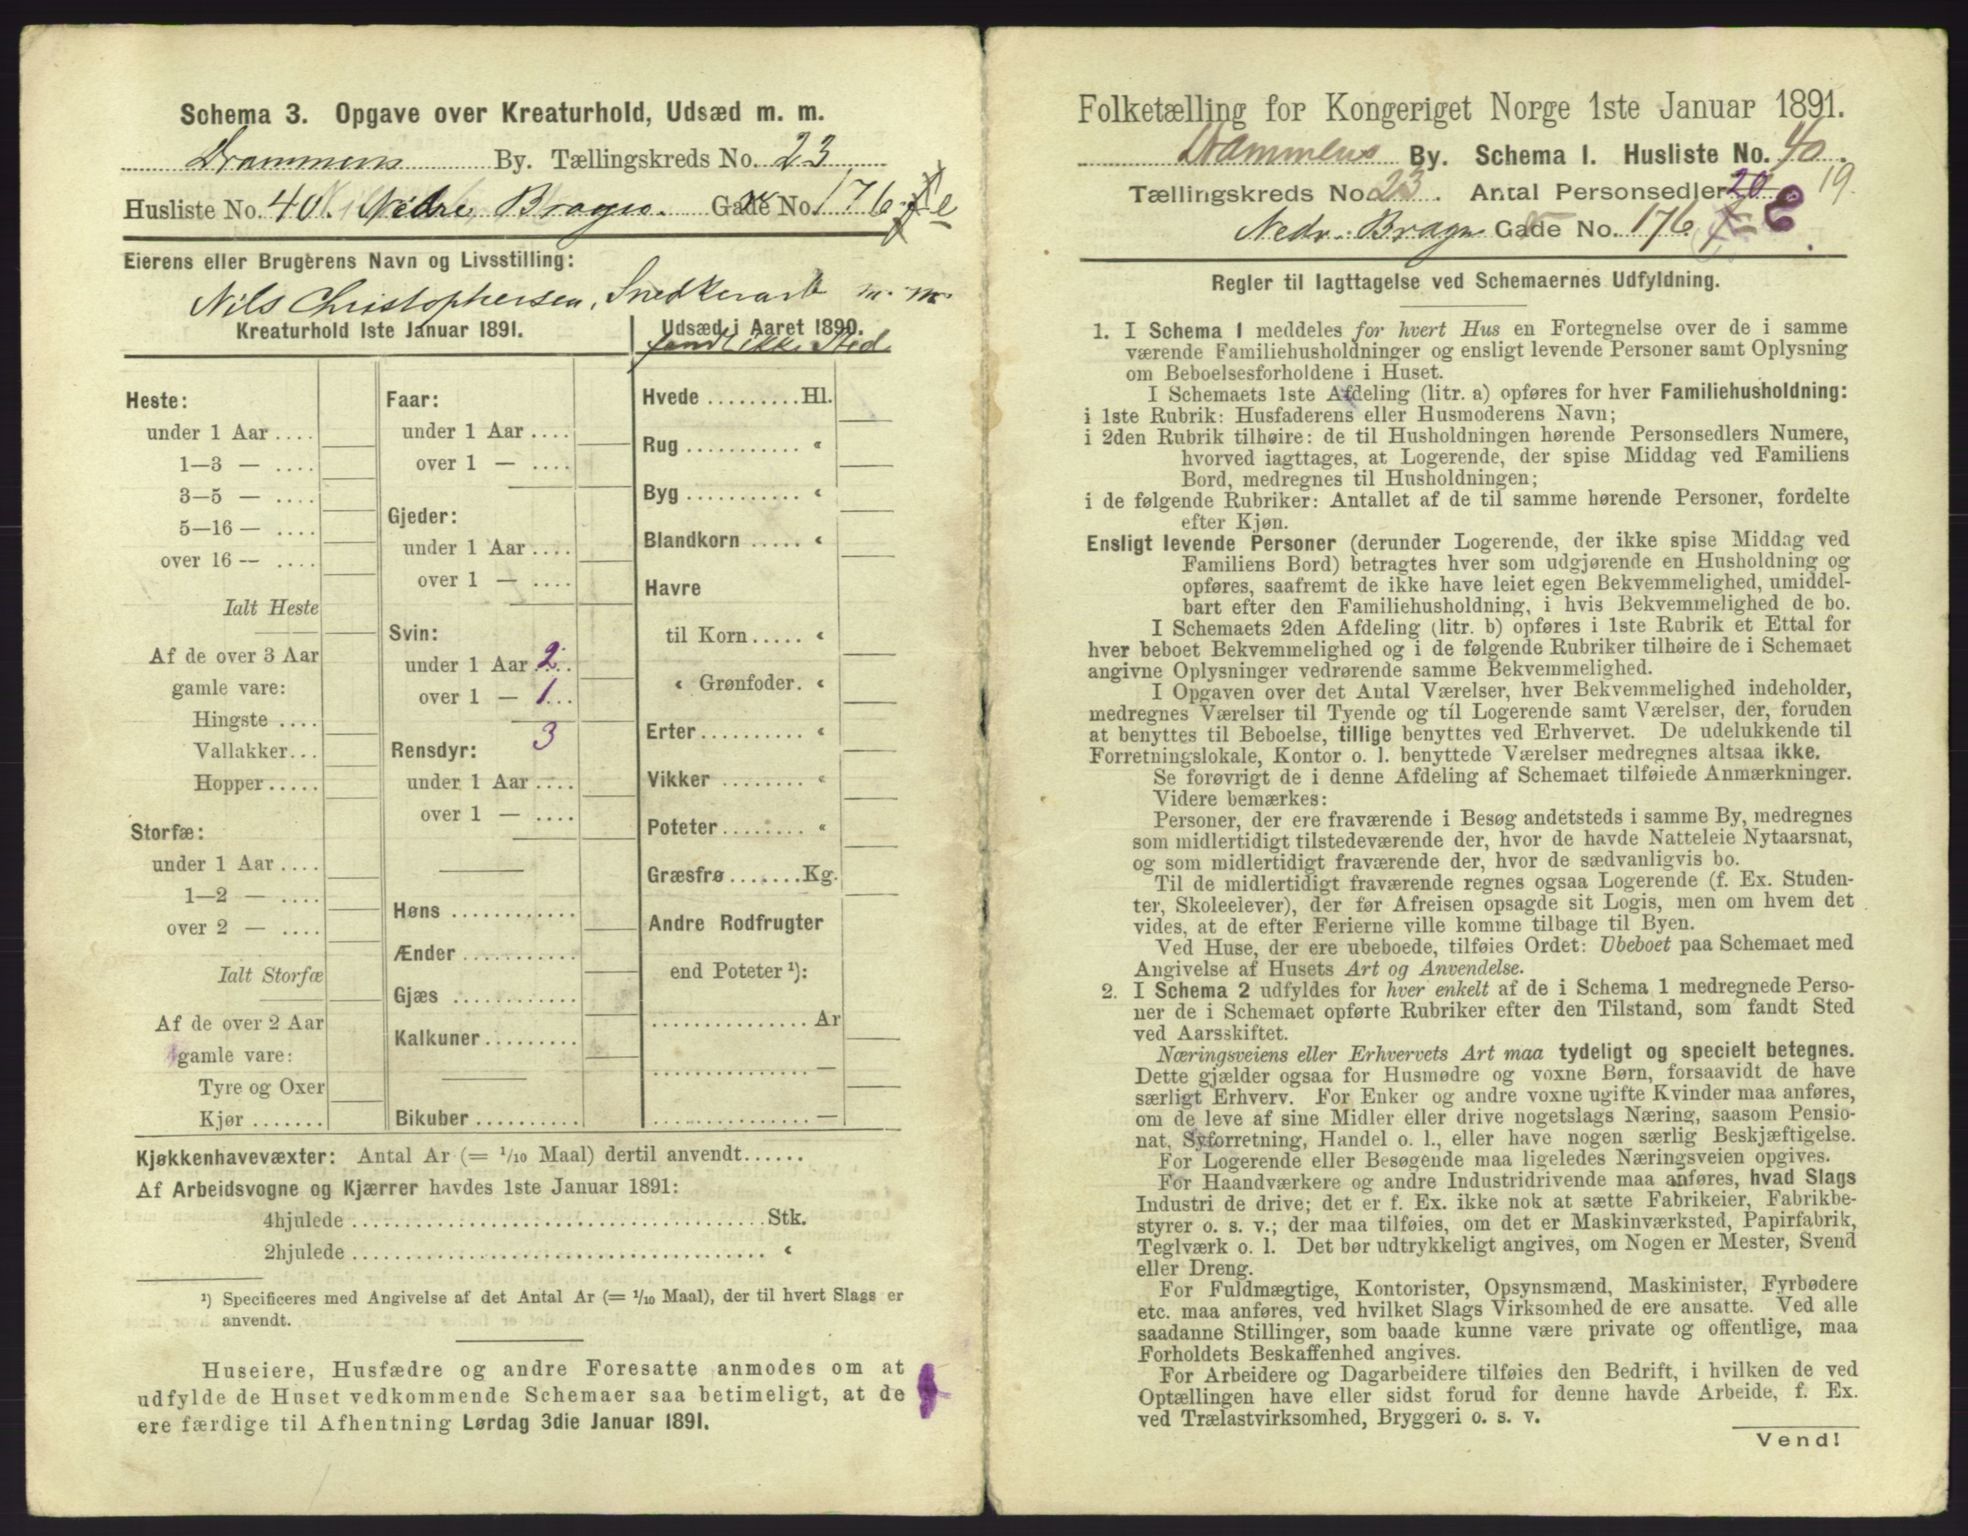 Schema 3. Opgave over Kreaturhold, Udsæd m. m.
Drammens By. Tællingskreds No. 23
Husliste No. 40. Nedre Brages. Gade No. 176 e
Eierens eller Brugerens Navn og Livsstilling:
Nils Christophersen, Snedkerarb m. m.
Kreaturhold 1ste Januar 1891.
Heste:
under 1 Aar ....
1—3 — ....
3—5 — ....
5—16 — ....
over 16 — ....
Ialt Heste
Af de over 3 Aar
gamle vare:
Hingste ....
Vallakker...
Hopper.....
Storfæ:
under 1 Aar ....
1—2 — ....
over 2 — ....
Ialt Storfæ
Af de over 2 Aar
gamle vare:
Tyre og Oxer
Kjør .......
Faar:
under 1 Aar ....
over 1 — ....
Gjeder:
under 1 Aar ....
over 1 — ....
Svin:
under 1 Aar 2
over 1 — 1
3
Rensdyr:
under 1 Aar ....
over 1 — ....
Høns ............
Ænder ...........
Gjæs ............
Kalkuner.........
Bikuber..........
Udsæd i Aaret 1890.
fandt ikke Sted
Hvede .........Hl.
Rug ........... «
Byg ........... «
Blandkorn ..... «
Havre
til Korn..... «
« Grønfoder. «
Erter.......... «
Vikker ........ «
Poteter........ «
Græsfrø.......Kg.
Andre Rodfrugter
end Poteter ¹):
...............Ar
............... —
............... —
Kjøkkenhavevæxter: Antal Ar (= 1/10 Maal) dertil anvendt......
Af Arbeidsvogne og Kjærrer havdes 1ste Januar 1891:
4hjulede ........................................Stk.
2hjulede ........................................ «
¹) Specificeres med Angivelse af det Antal Ar (= 1/10 Maal), der til hvert Slags er
anvendt.
Huseiere, Husfædre og andre Foresatte anmodes om at
udfylde de Huset vedkommende Schemaer saa betimeligt, at de
ere færdige til Afhentning Lørdag 3die Januar 1891.
Folketælling for Kongeriget Norge 1ste Januar 1891.
Drammens By. Schema 1. Husliste No. 40.
Tællingskreds No. 23. Antal Personsedler 20 19.
Nedr. Brags Gade No. 176 E
Regler til Iagttagelse ved Schemaernes Udfyldning.
1. I Schema 1 meddeles for hvert Hus en Fortegnelse over de i samme
værende Familiehusholdninger og ensligt levende Personer samt Oplysning
om Beboelsesforholdene i Huset.
I Schemaets 1ste Afdeling (litr. a) opføres for hver Familiehusholdning:
i 1ste Rubrik: Husfaderens eller Husmoderens Navn;
i 2den Rubrik tilhøire: de til Husholdningen hørende Personsedlers Numere,
hvorved iagttages, at Logerende, der spise Middag ved Familiens
Bord, medregnes til Husholdningen;
i de følgende Rubriker: Antallet af de til samme hørende Personer, fordelte
efter Kjøn.
Ensligt levende Personer (derunder Logerende, der ikke spise Middag ved
Familiens Bord) betragtes hver som udgjørende en Husholdning og
opføres, saafremt de ikke have leiet egen Bekvemmelighed, umiddel-
bart efter den Familiehusholdning, i hvis Bekvemmelighed de bo.
I Schemaets 2den Afdeling (litr. b) opføres i 1ste Rubrik et Ettal for
hver beboet Bekvemmelighed og i de følgende Rubriker tilhøire de i Schemaet
angivne Oplysninger vedrørende samme Bekvemmelighed.
I Opgaven over det Antal Værelser, hver Bekvemmelighed indeholder,
medregnes Værelser til Tyende og til Logerende samt Værelser, der, foruden
at benyttes til Beboelse, tillige benyttes ved Erhvervet. De udelukkende til
Forretningslokale, Kontor o. l. benyttede Værelser medregnes altsaa ikke.
Se forøvrigt de i denne Afdeling af Schemaet tilføiede Anmærkninger.
Videre bemærkes:
Personer, der ere fraværende i Besøg andetsteds i samme By, medregnes
som midlertidigt tilstedeværende der, hvor de havde Natteleie Nytaarsnat,
og som midlertidigt fraværende der, hvor de sædvanligvis bo.
Til de midlertidigt fraværende regnes ogsaa Logerende (f. Ex. Studen-
ter, Skoleelever), der før Afreisen opsagde sit Logis, men om hvem det
vides, at de efter Ferierne ville komme tilbage til Byen.
Ved Huse, der ere ubeboede, tilføies Ordet: Ubeboet paa Schemaet med
Angivelse af Husets Art og Anvendelse.
2. I Schema 2 udfyldes for hver enkelt af de i Schema 1 medregnede Perso-
ner de i Schemaet opførte Rubriker efter den Tilstand, som fandt Sted
ved Aarsskiftet.
Næringsveiens eller Erhvervets Art maa tydeligt og specielt betegnes.
Dette gjælder ogsaa for Husmødre og voxne Børn, forsaavidt de have
særligt Erhverv. For Enker og andre voxne ugifte Kvinder maa anføres,
om de leve af sine Midler eller drive nogetslags Næring, saasom Pensio-
nat, Syforretning, Handel o. l., eller have nogen særlig Beskjæftigelse.
For Logerende eller Besøgende maa ligeledes Næringsveien opgives.
For Haandværkere og andre Industridrivende maa anføres, hvad Slags
Industri de drive; det er f. Ex. ikke nok at sætte Fabrikeier, Fabrikbe-
styrer o. s. v.; der maa tilføies, om det er Maskinværksted, Papirfabrik,
Teglværk o. l. Det bør udtrykkeligt angives, om Nogen er Mester, Svend
eller Dreng.
For Fuldmægtige, Kontorister, Opsynsmænd, Maskinister, Fyrbødere
etc. maa anføres, ved hvilket Slags Virksomhed de ere ansatte. Ved alle
saadanne Stillinger, som baade kunne være private og offentlige, maa
Forholdets Beskaffenhed angives.
For Arbeidere og Dagarbeidere tilføies den Bedrift, i hvilken de ved
Optællingen have eller sidst forud for denne havde Arbeide, f. Ex.
ved Trælastvirksomhed, Bryggeri o. s. v.
Vend!